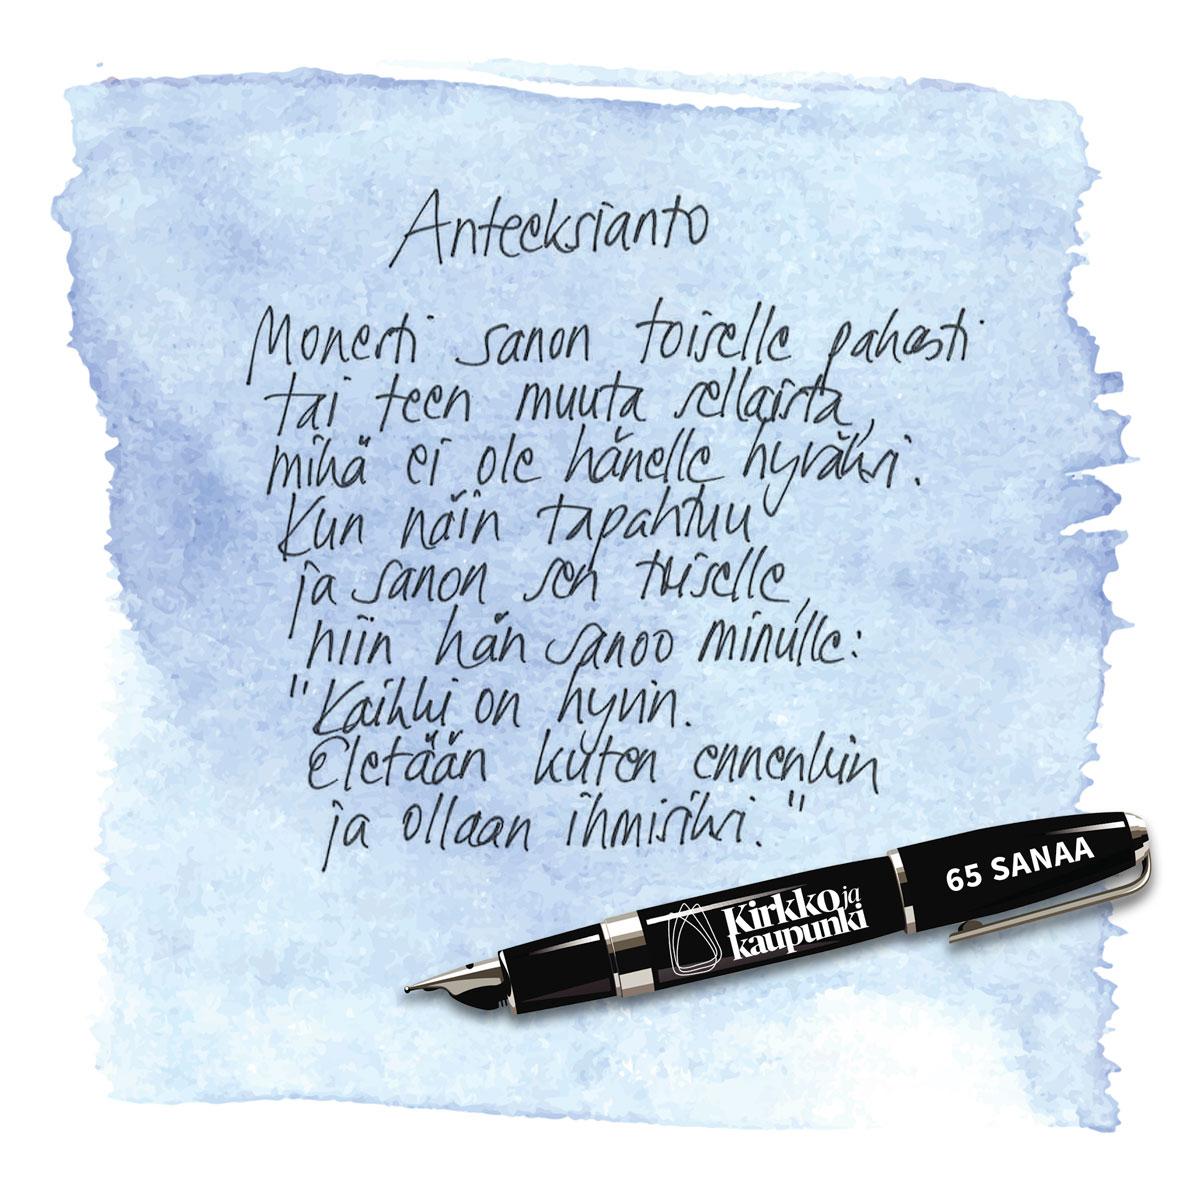 Anteeksianto
Monesti sanon toiselle pahasti
tai teen muuta sellaista,
mikä ei ole hänelle hyväksi.
Kun näin tapahtuu
ja sanon sen toiselle,
niin hän sanoo minulle:
"Kaikki on hyvin.
Eletään kuten ennenkin
ja ollaan ihmisiksi."
65 SANAA
Kirkko ja
kaupunki